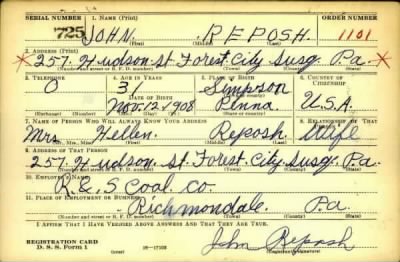 SERIAL NUMBER 1. NAME (Print) ORDER NUMBER
725 JOHN REPOSH. 1101
(First) (Middle) (Last)
2. ADDRESS (Print)
x 257. Hudson St Forest City Susq. Pa. x
(Number and street or R. F. D. number) (Town) (County) (State)
3. TELEPHONE 4. AGE IN YEARS 5. PLACE OF BIRTH 6. COUNTRY OF CITIZENSHIP
O 31 Simpson
DATE OF BIRTH
Nov. 12. 1908 Penna U.S.A.
7. NAME OF PERSON WHO WILL ALWAYS KNOW YOUR ADDRESS RELATIONSHIP OF THAT
Mrs Hellen Reposh Wife
8. ADDRESS OF THAT PERSON
257. Hudson. St. Forest City. Susq. Pa.
(Number and street or R. F. D. number) (Town) (County) (State)
10. EMPLOYER'S NAME
R. & S Coal Co.
11. PLACE OF EMPLOYMENT OR BUSINESS
Richmondale. Pa
(Number and street or R. F. D. number) (Town) (County) (State)
I AFFIRM THAT I HAVE VERIFIED ABOVE ANSWERS AND THAT THEY ARE TRUE.
REGISTRATION CARD
D. S. S. Form 1 (over) 16-17105
John Reposh